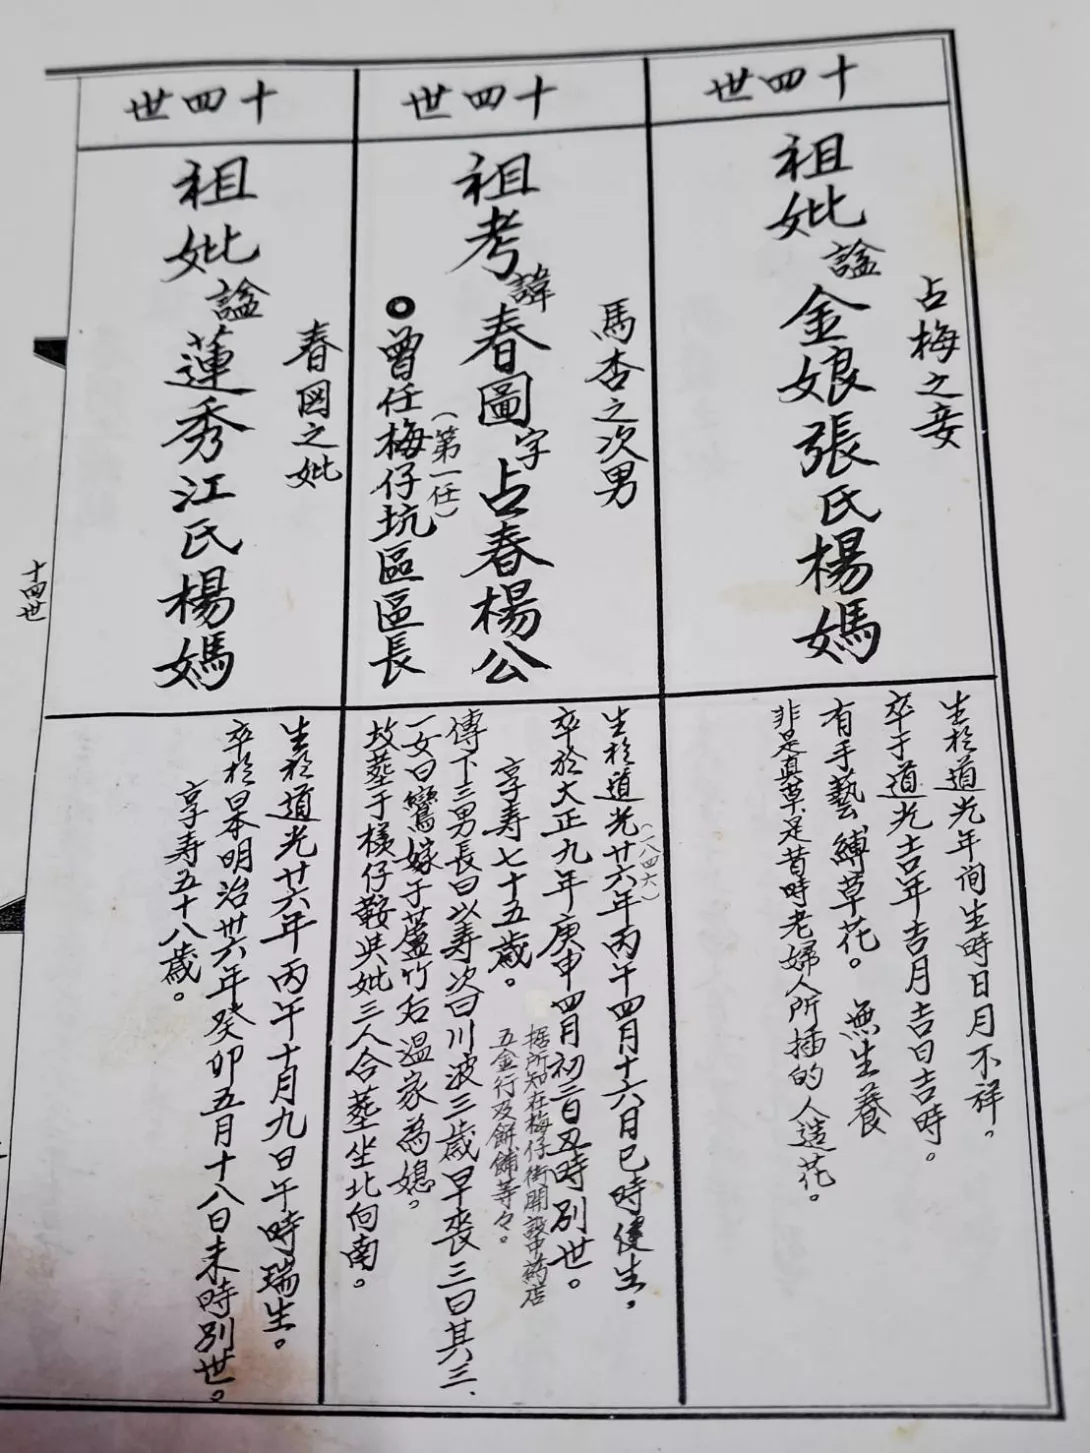 十四世
占梅之妾
祖妣諡金娘張氏楊媽
生於道光年间生時日月不祥。
卒于道光吉年吉月吉日吉時。
有手藝縛草花。無生養
非是真草是昔時老婦人所插的人造花。
十四世
馬杏之次男
祖考諱春圖字占春楊公
(第一任)
曾任梅仔坑區區長
(一八四六)
生於道光廿六年丙午四月十六月巳時健生。
卒於大正九年庚申四月初三日丑時別世。
享寿七十五歲。
据所知在梅仔街開設中药店
五金行及餅舖等々。
傳下三男長曰以寿次曰川波三歲早喪三曰其三、
一女曰鸞嫁于蘆竹右溫家為媳。
故葬于檨仔鞍與妣三人合葬坐北向南。
十四世
春図之妣
祖妣諡蓮秀江氏楊媽
生於道光廿六年丙午十月九日午時瑞生。
卒於日本明治卅六年癸卯五月十八日未時別世。
享寿五十八歲。
十四世